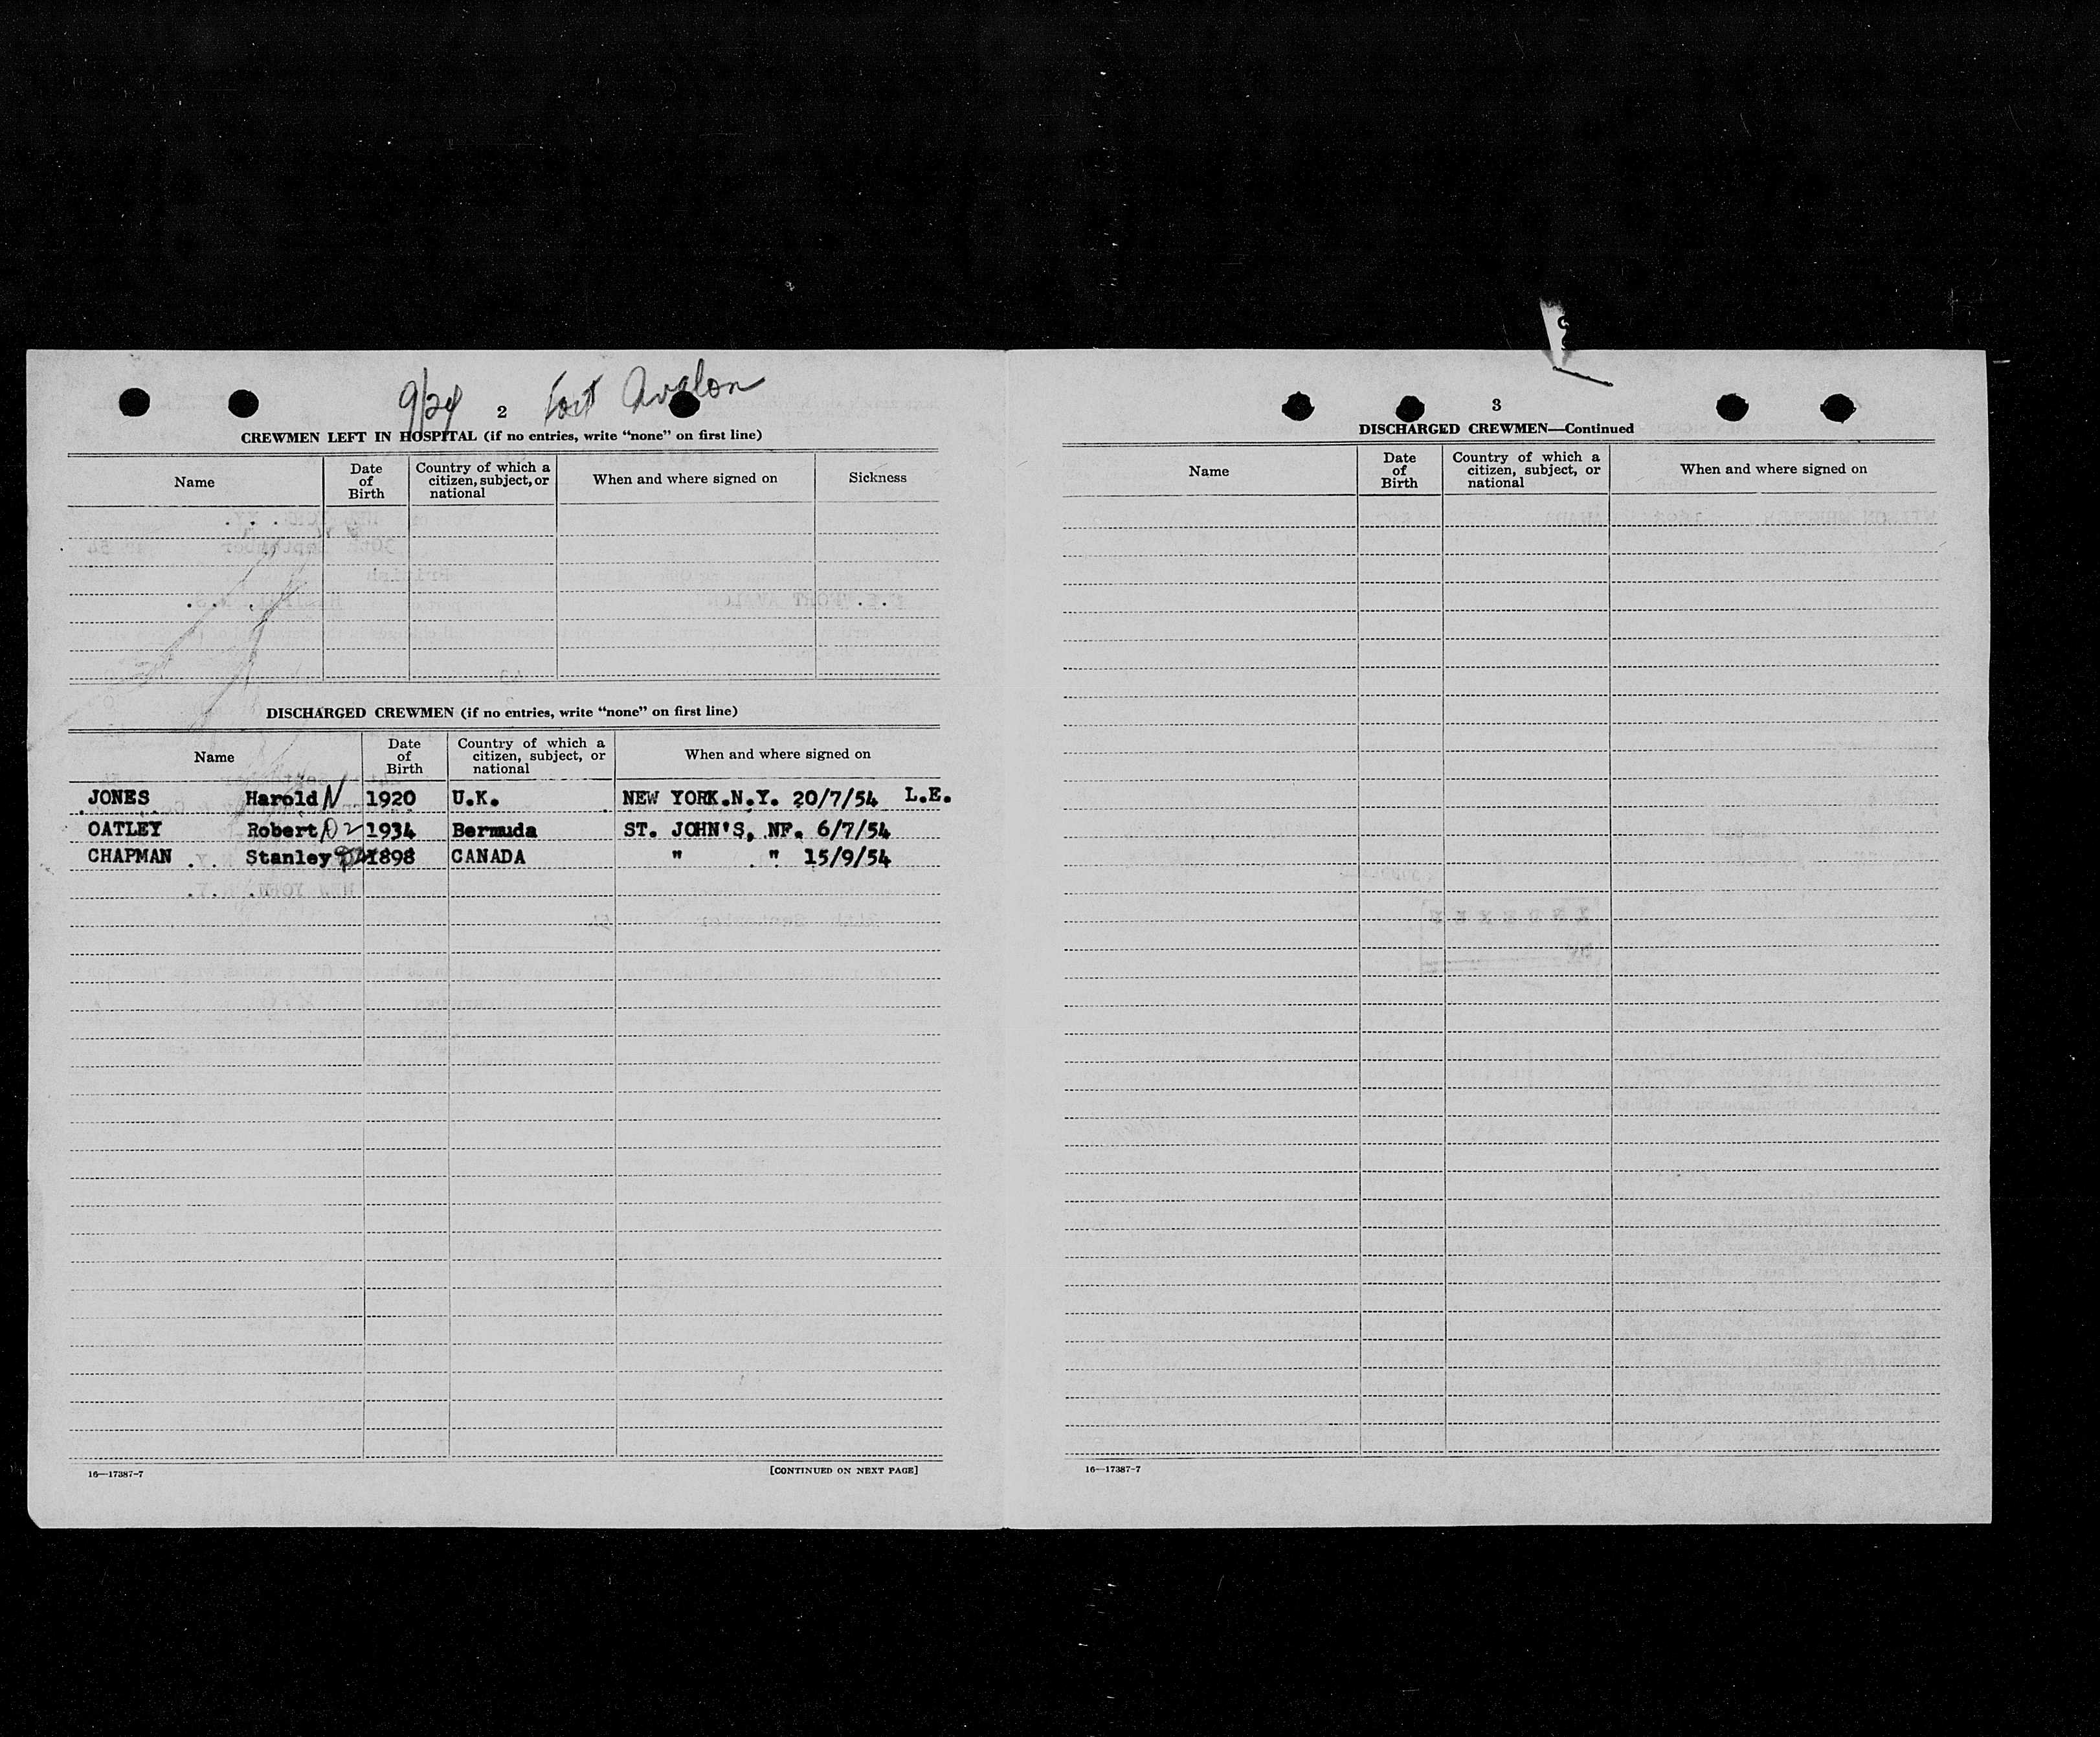 9/24 2 Fort Avalon
CREWMEN LEFT IN HOSPITAL (if no entries, write “none” on first line)
Name Date of Birth Country of which a citizen, subject, or national When and where signed on Sickness
DISCHARGED CREWMEN (if no entries, write “none” on first line)
Name Date of Birth Country of which a citizen, subject, or national When and where signed on
JONES Harold N 1920 U.K. NEW YORK.N.Y. 20/7/54 L.E.
OATLEY Robert D2 1934 Bermuda ST. JOHN'S, NF. 6/7/54
CHAPMAN Stanley 1898 CANADA " " 15/9/54
16—17387-7 [CONTINUED ON NEXT PAGE]
3
DISCHARGED CREWMEN—Continued
Name Date of Birth Country of which a citizen, subject, or national When and where signed on
16—17387-7